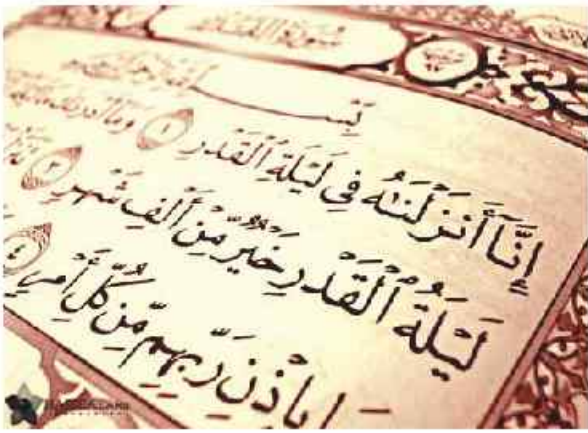 سُورَةُ القَدْرِ
بِسْمِ
إِنَّآ أَنزَلْنَـٰهُ فِى لَيْلَةِ ٱلْقَدْرِ ١ وَمَآ أَدْرَىٰكَ
لَيْلَةُ ٱلْقَدْرِ خَيْرٌ مِّنْ أَلْفِ شَهْرٍ ٣
بِإِذْنِ رَبِّهِم مِّن كُلِّ أَمْرٍ ٤